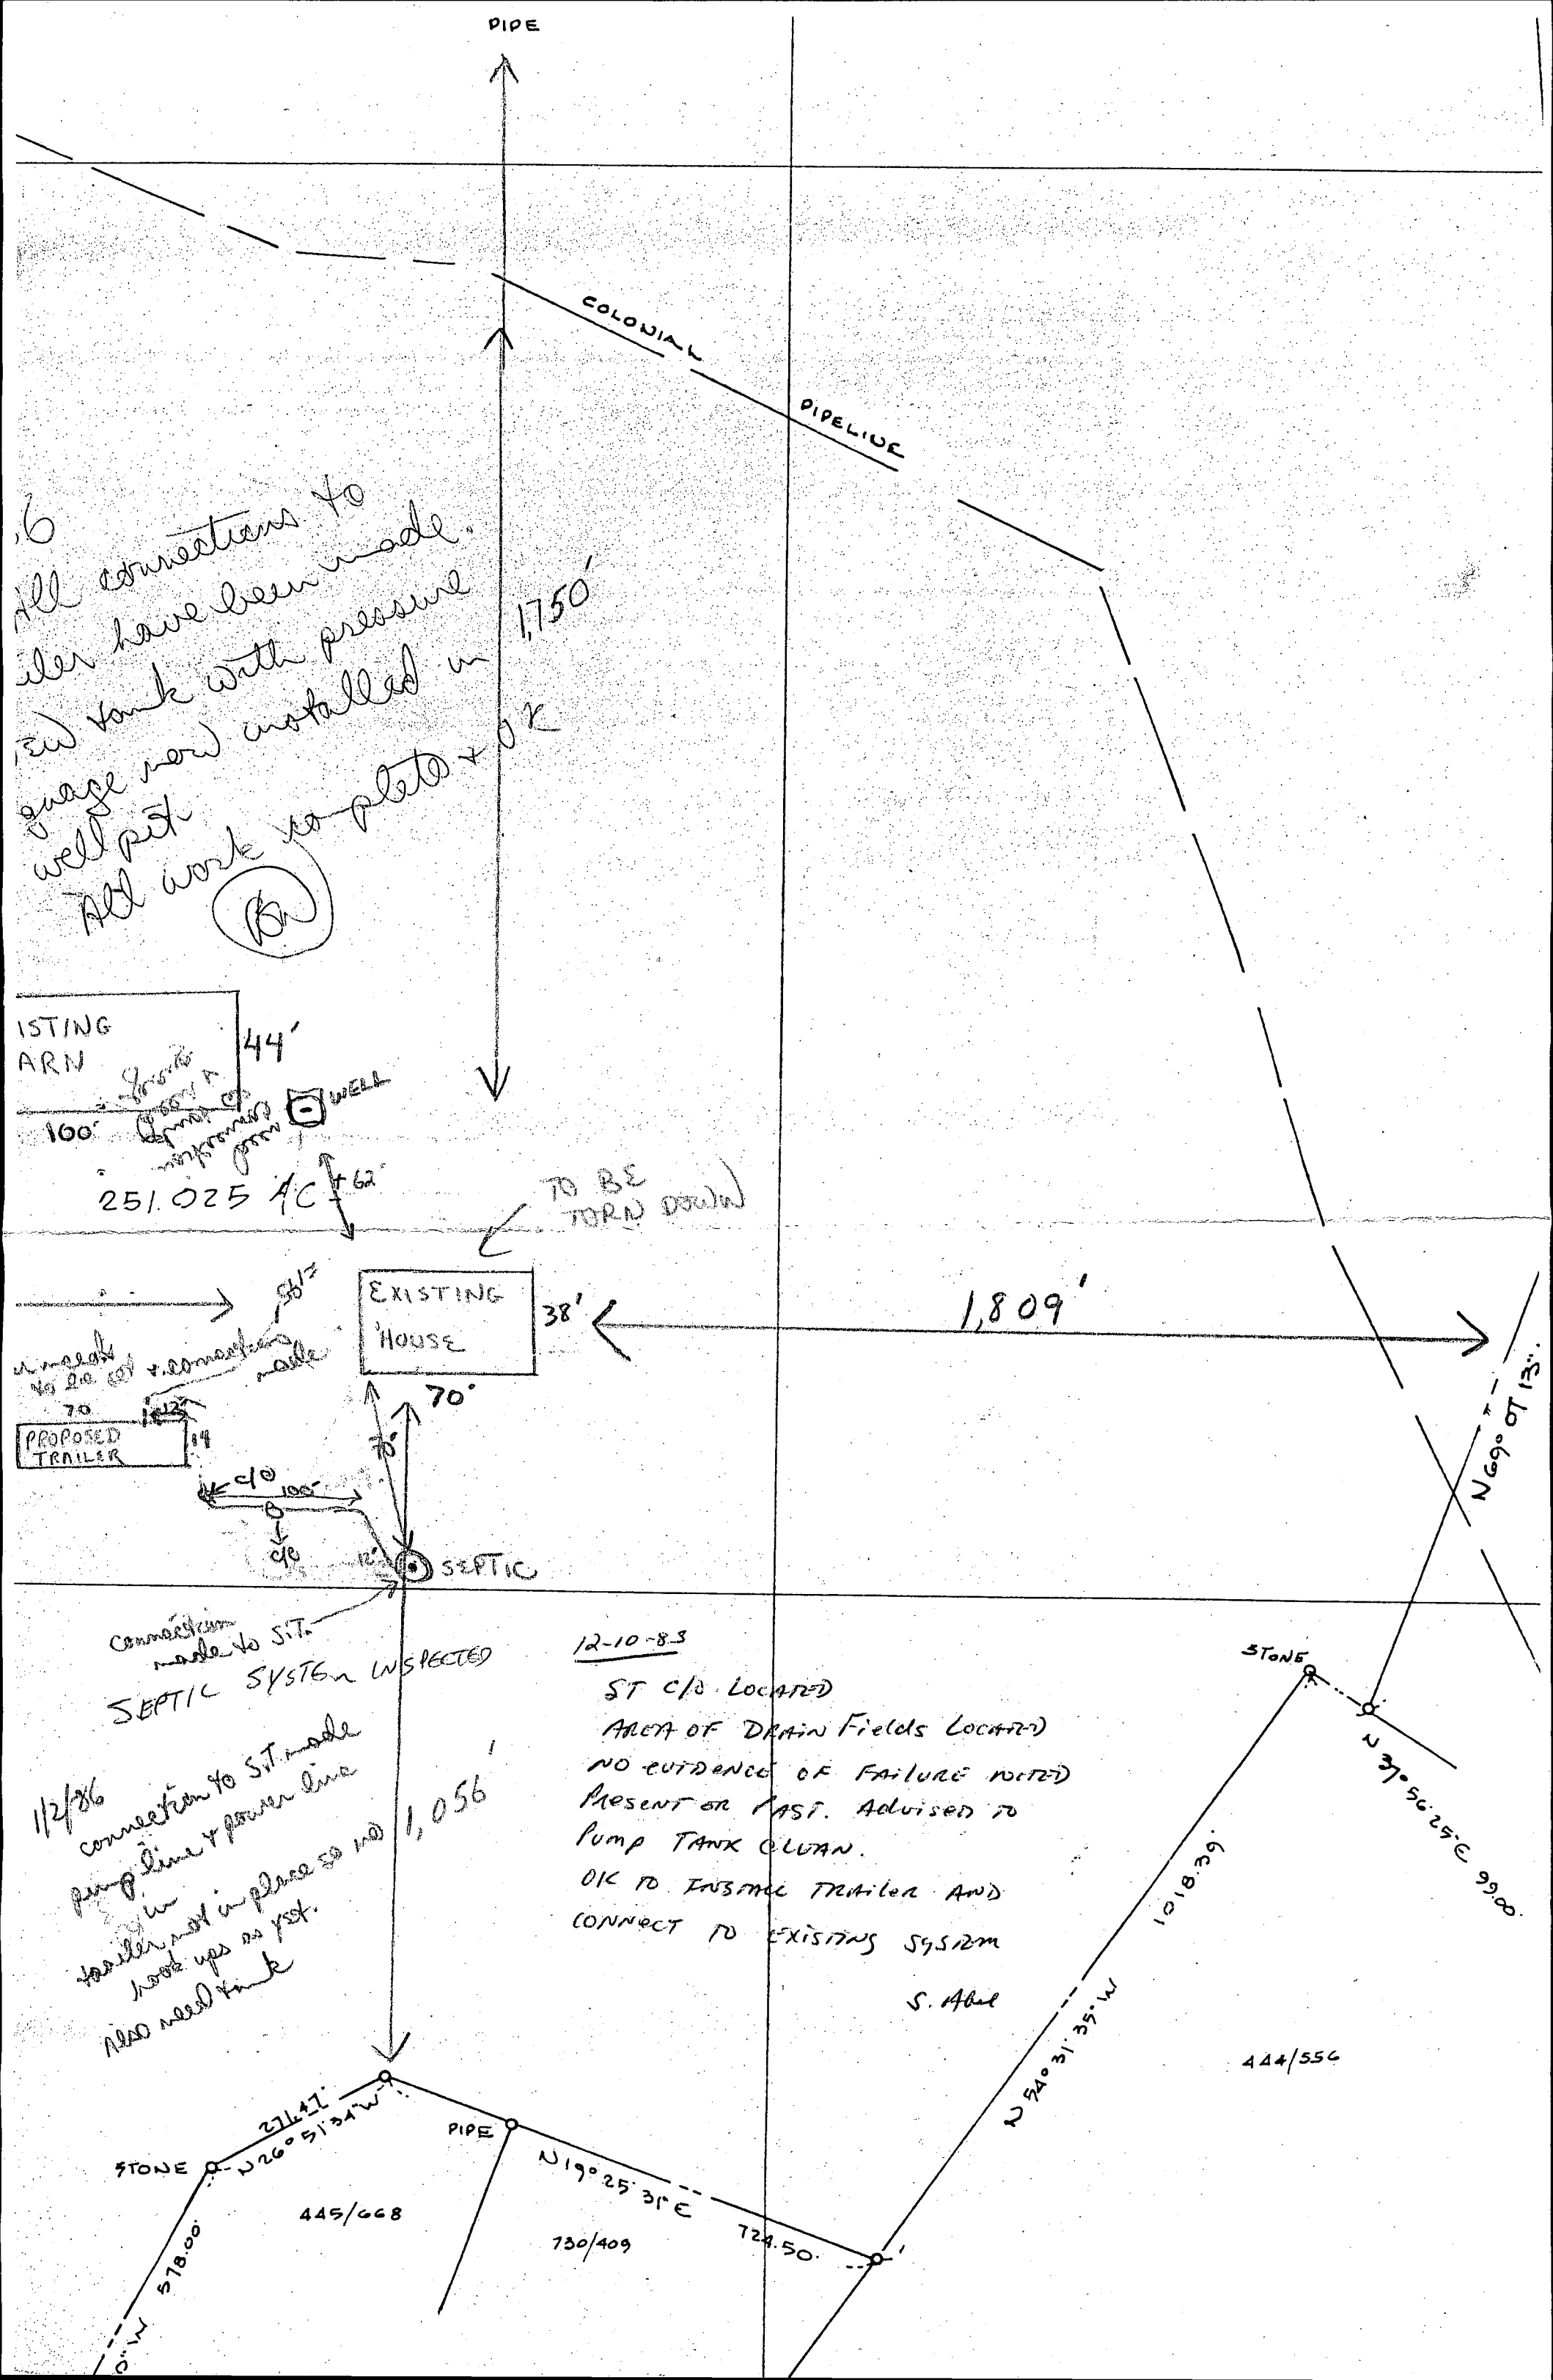 PIPE
COLONIAL
PIPELINE
6
All connections to
iler have been made.
ew tank with pressure
guage now installed in
well pit
All work complete & OK
1,750'
ISTING
ARN
44'
100'
WELL
251.025 AC±
62'
TO BE
TORN DOWN
EXISTING
HOUSE
38'
1,809'
to be set & connections
made
70
PROPOSED
TRAILER
14
70'
70'
c/o
100'
c/o
12'
SEPTIC
connection
made to S.T.
SEPTIC SYSTEM INSPECTED
1/2/86
connection to S.T. made
pump line & power line
in
trailer not in place so no
hook ups as yet.
Also need tank
1,056'
12-10-85
ST C/O LOCATED
AREA OF DRAIN Fields LOCATED
NO EVIDENCE OF FAILURE NOTED
PRESENT OR PAST. Advised TO
Pump TANK CLEAN.
OK TO INSTALL TRAILER AND
CONNECT TO EXISTING SYSTEM
S. Abel
N 69° 07' 13"
STONE
N 37° 56' 25" E 99.00'
1018.39'
N 54° 31' 35" W
444/556
N 26° 51' 34" W
STONE
PIPE
N 19° 25' 31" E
724.50'
445/668
730/409
578.00'
0" W